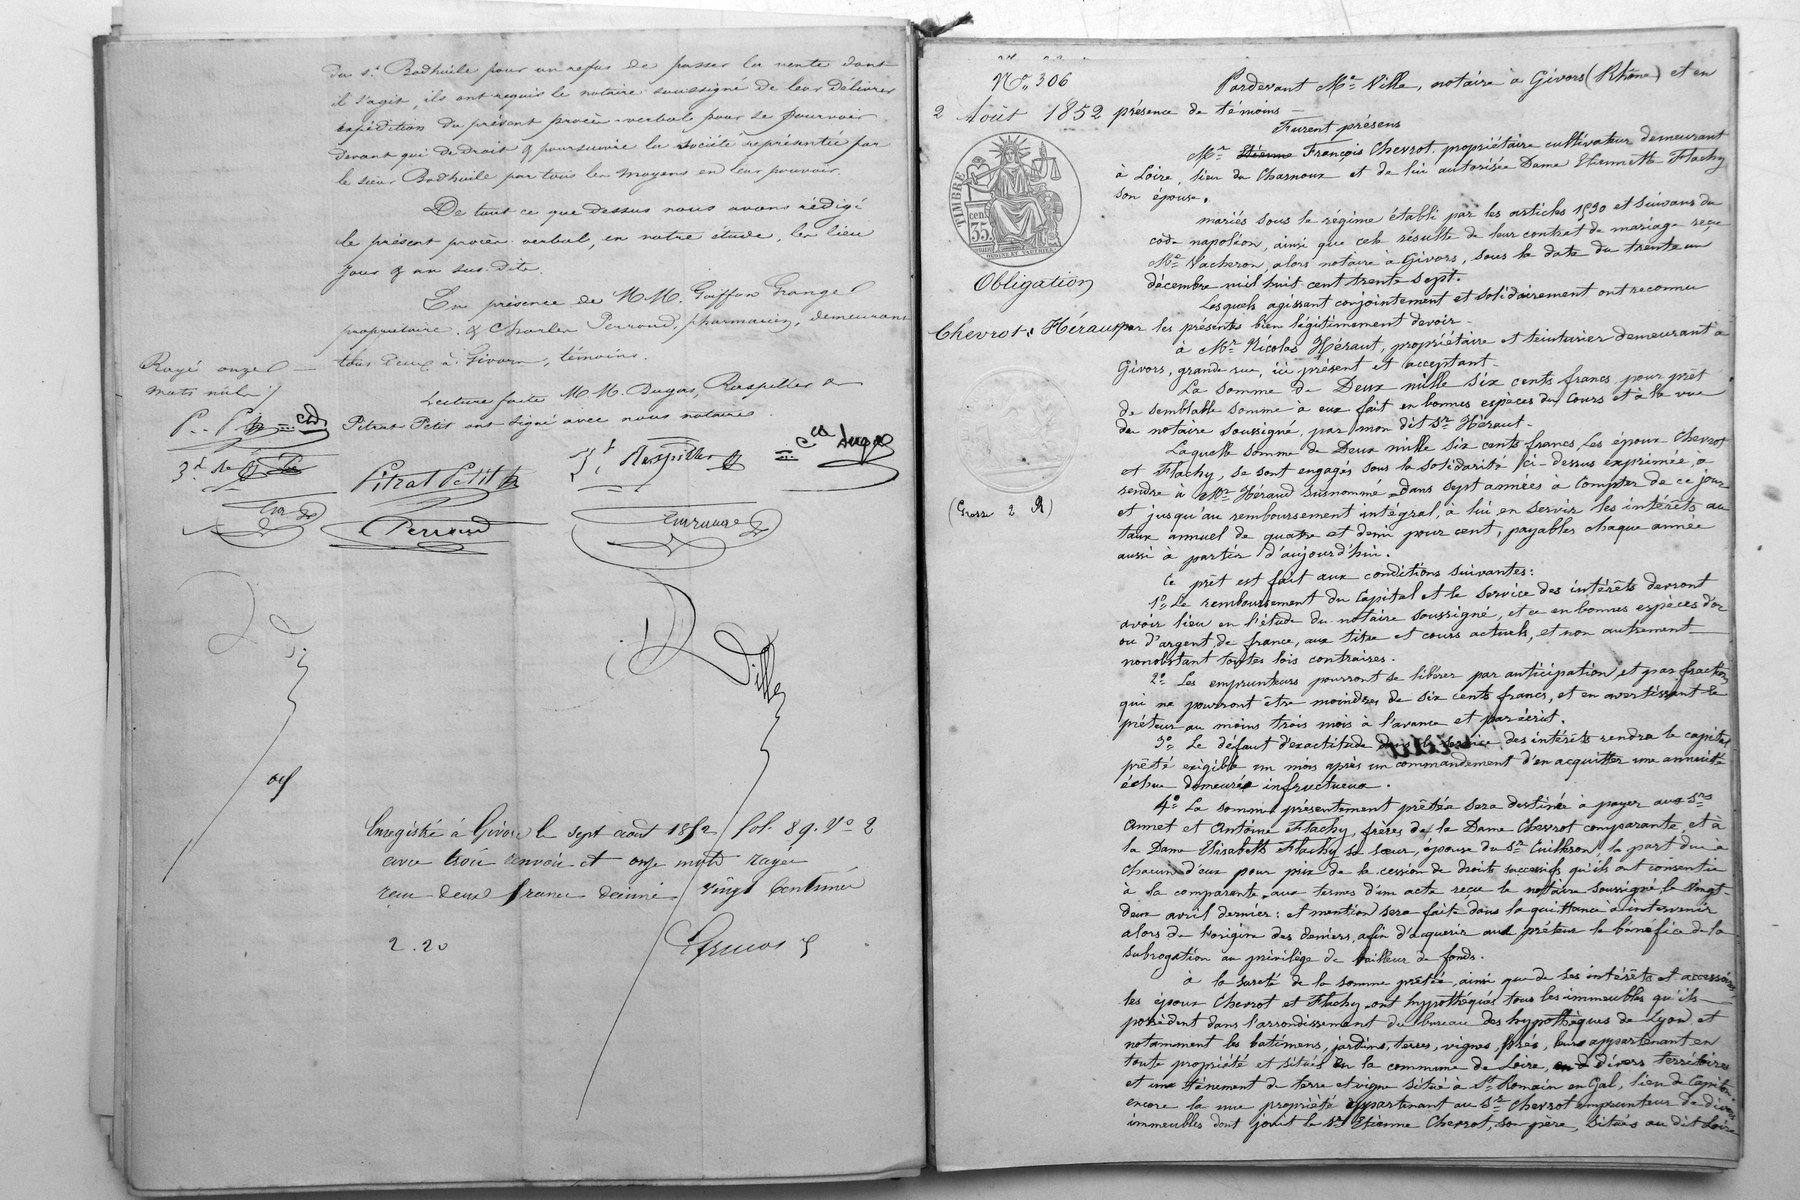 du s.r Badhuile pour un refus de passer la vente dont
il s'agit, ils ont requis le notaire soussigné de leur délivrer
expédition du présent procès-verbal pour se pourvoir
devant qui de droit & poursuivre la société représentée par
le sieur Badhuile par tous les moyens en leur pouvoir.
De tout ce que dessus nous avons rédigé
le présent procès-verbal, en notre étude, les lieu
jour & an sus-dits.
En présence de M.M. Goiffon Granger
propriétaire, & Charles Perroud, pharmacien, demeurans
tous deux à Givors, témoins.
Lecture faite M.M. Dugas, Raspiller &
Pitrat Petit ont signé avec nous notaire.
Rayé onze
mots nuls
Pitrat Petit
Raspiller
Dugas
Perroud
Ville
Enregistré à Givors le sept août 1852 fol. 89. Vo 2
avec trois renvois et onze mots rayés
reçu deux francs décime vingt centimes
2.20
No. 306
2 Août 1852
TIMBRE
cent.
35
Obligation
Chevrot à Héraut
(Gross 2 R)
Pardevant Me Ville, notaire à Givors (Rhône) et en
présence de témoins —
Furent présens
Mr Etienne François Chevrot, propriétaire cultivateur demeurant
à Loire, lieu du Charnoux et de lui autorisée Dame Etiennette Flachy
son épouse.
mariés sous le régime établi par les articles 1530 et suivans du
code napoléon, ainsi que cela résulte de leur contrat de mariage reçu
Me Vacheron, alors notaire à Givors, sous la date du trente un
décembre mil huit cent trente sept.
Lesquels agissant conjointement et solidairement ont reconnu
par les présentes bien légitimement devoir —
à Mr Nicolas Héraut, propriétaire et teinturier demeurant à
Givors, grande rue, ici présent et acceptant —
La somme de Deux mille six cents francs pour prêt
de semblable somme à eux fait en bonnes espèces du cours et à la vue
du notaire soussigné, par mon dit Sr Héraut.
Laquelle somme de Deux mille six cents francs, les époux Chevrot
et Flachy, se sont engagés sous la solidarité ci-dessus exprimée, à
rendre à Mr Héraud susnommé dans sept années à compter de ce jour
et jusqu'au remboursement intégral, à lui en servir les intérêts au
taux annuel de quatre et demi pour cent, payables chaque année
aussi à partir d'aujourd'hui.
Ce prêt est fait aux conditions suivantes:
1o Le remboursement du Capital et le service des intérêts devront
avoir lieu en l'étude du notaire soussigné, et ce en bonnes espèces d'or
ou d'argent de france, aux titre et cours actuels, et non autrement
nonobstant toutes lois contraires.
2o Les emprunteurs pourront se libérer par anticipation et par fractions
qui ne pourront être moindres de six cents francs, et en avertissant le
prêteur au moins trois mois à l'avance et par écrit.
3o Le défaut d'exactitude dans le service des intérêts rendra le capital
prêté exigible un mois après un commandement d'en acquitter une annuité
échue demeuré infructueux.
4o La somme présentement prêtée sera destinée à payer aux Srs
Annet et Antoine Flachy, frères de la Dame Chevrot comparante, et à
la Dame Elisabeth Flachy sa sœur, épouse du Sr Cuilleron la part due à
chacun d'eux pour prix de la cession de droits successifs qu'ils ont consentie
à la comparante aux termes d'un acte reçu le notaire soussigné le vingt-
deux avril dernier: et mention sera faite dans la quittance à intervenir
alors de l'origine des deniers, afin d'acquerir aud. prêteur le bénéfice de la
subrogation au privilège de bailleur de fonds.
à la sureté de la somme prêtée, ainsi que de ses intérêts et accessoires,
les époux Chevrot et Flachy ont hypothéqués tous les immeubles qu'ils
possèdent dans l'arrondissement du bureau des hypothèques de Lyon et
notamment les batimens, jardins, terres, vignes, prés, leur appartenant en
toute propriété et situés en la commune de Loire, en divers territoires
et un tènement de terre et vigne situé à St Romain en Gal, lieu de
encore la nue propriété appartenant au Sr Chevrot emprunteur de divers
immeubles dont jouit le Sr Etienne Chevrot, son père, situés au dit Loire